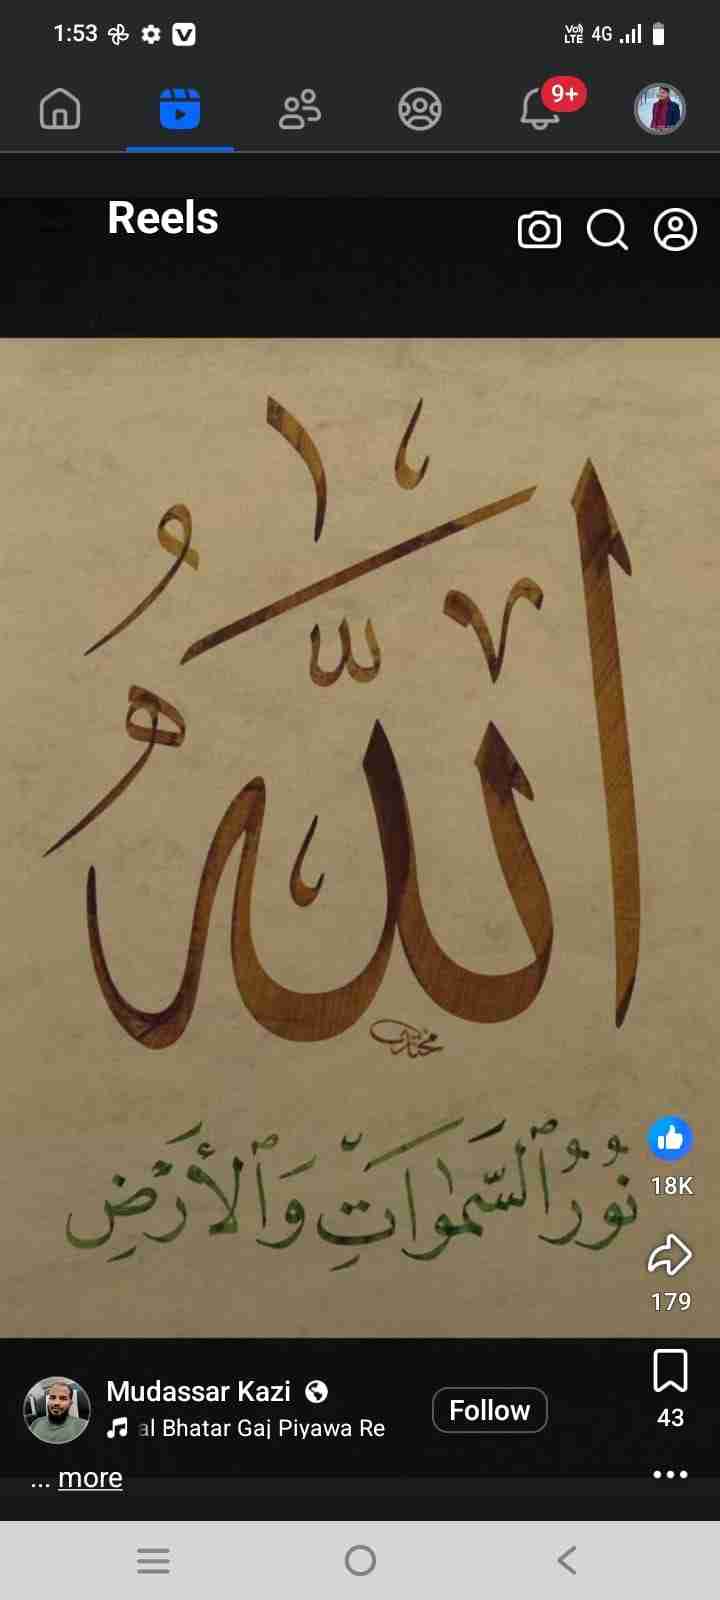 1:53
Vo) LTE 4G
9+
Reels
اللَّهُ
نُورُ ٱلسَّمٰوَاتِ وَٱلْأَرْضِ
18K
179
Mudassar Kazi
al Bhatar Gaj Piyawa Re
Follow
43
... more